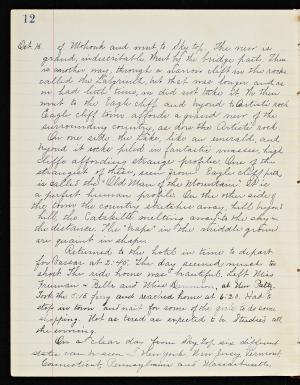 12
Oct. 16 of Mohonk and went to Sky top. The view is
grand, indescribable. Went by the bridge path. There
is another way, through a narrow cleft in the rocks
called the Labyrinth, but that was longer and as
we had little time, we did not take it. We then
went to the Eagle cliff and beyond to Artist's rock
Eagle cliff affords a grand view of the
surrounding country, as does the Artist's rock
On one side the lake, like an emerald, and
beyond it rocks piled in fantastic masses, high
cliffs affording strange profiles. One of the
strangest of these, seen from Eagle cliff path
is called the "Old Man of the Mountain". It is
a perfect human profile. On the other side of
the the country stretches away, hill upon
hill, the Catskills melting away to the sky in
the distance. The "traps" in the middle ground
are quaint in shape.
Returned to the hotel in time to depart
for at 2:45. The day seemed much to
short. The ride home was beautiful. Left Miss
Freeman - Belle and Miss at New Paltz.
Took the 5:15 ferry and reached home at 6:20. Had to
stop in town and wait for some of the girls to do some
shopping. Not as tired as expected to be. Studied all
the evening.
On a clear day from Sky top six different
states can be seen - New York, New Jersey, Vermont
Connecticut, Pennsylvania and Massachusetts.